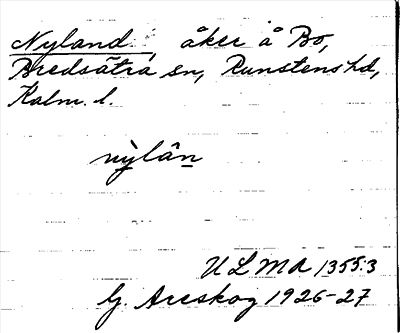 Nyland, åker å Bo,
Bredsätra sn, Runstens hd,
Kalm. l.
nỳlân
ULMA 1355:3
G. Areskog 1926-27